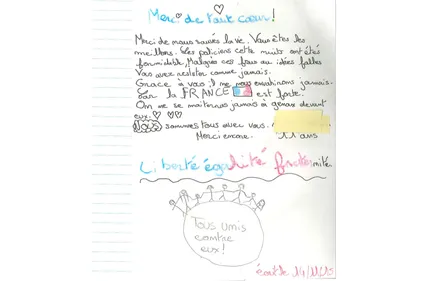 Merci de tout cœur!
Merci de nous sauvés la vie. Vous êtes les
meillons. Les policiers cette nuits ont étés
formidable, Malgrés ces fous au idées folles
Vous avez resister comme jamais.
Grace à vous nous jamais.
car la FRANCE est forte.
On ne se jamais à genoux devant
eux.
Nous sommes tous avec vous.
Merci encore. 11 ans
Liberté égalité
Tous unis
contre
eux!
écrit le